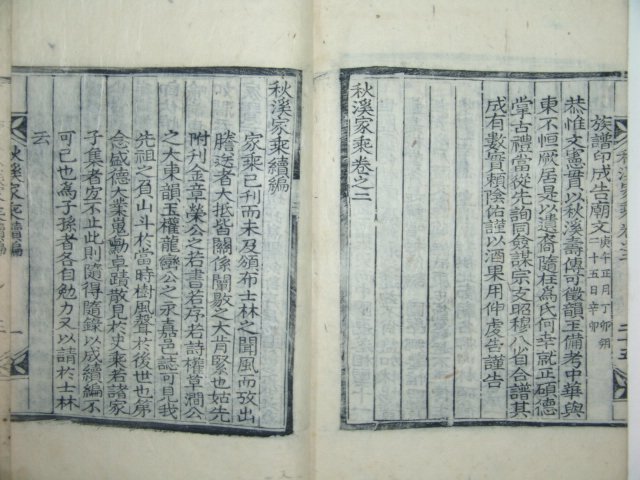 族譜印成告廟文 庚午正月丁卯朔二十五日辛卯
恭惟文憲貫以秋溪壽傳可徵韻玉備考中華與
東不恒厥居是以遺裔隨桂爲氏何幸就正碩德
掌古禮當從先詢同僉謀宗支昭穆八㢧合譜其
成有數實賴陰佑謹以酒果用伸虔告謹告
秋溪家乘卷之二
秋溪家乘續編
家乘已刊而未及頒布士林之聞風而攷出
謄送者大抵皆關係闡敭之大肯綮也姑先
附刊金章榮公之若書若序若詩權草澗公
之大東韻玉權龍巒公之永嘉邑誌可見我
先祖之名山斗於當時樹風聲於後世也第
念盛德大業嵬勳卓蹟散見於史乘若諸家
子集者宜不止此則隨得隨錄以成續編不
可已也爲子孫者各自勉力又以請於士林
云
秋溪家乘續編
一